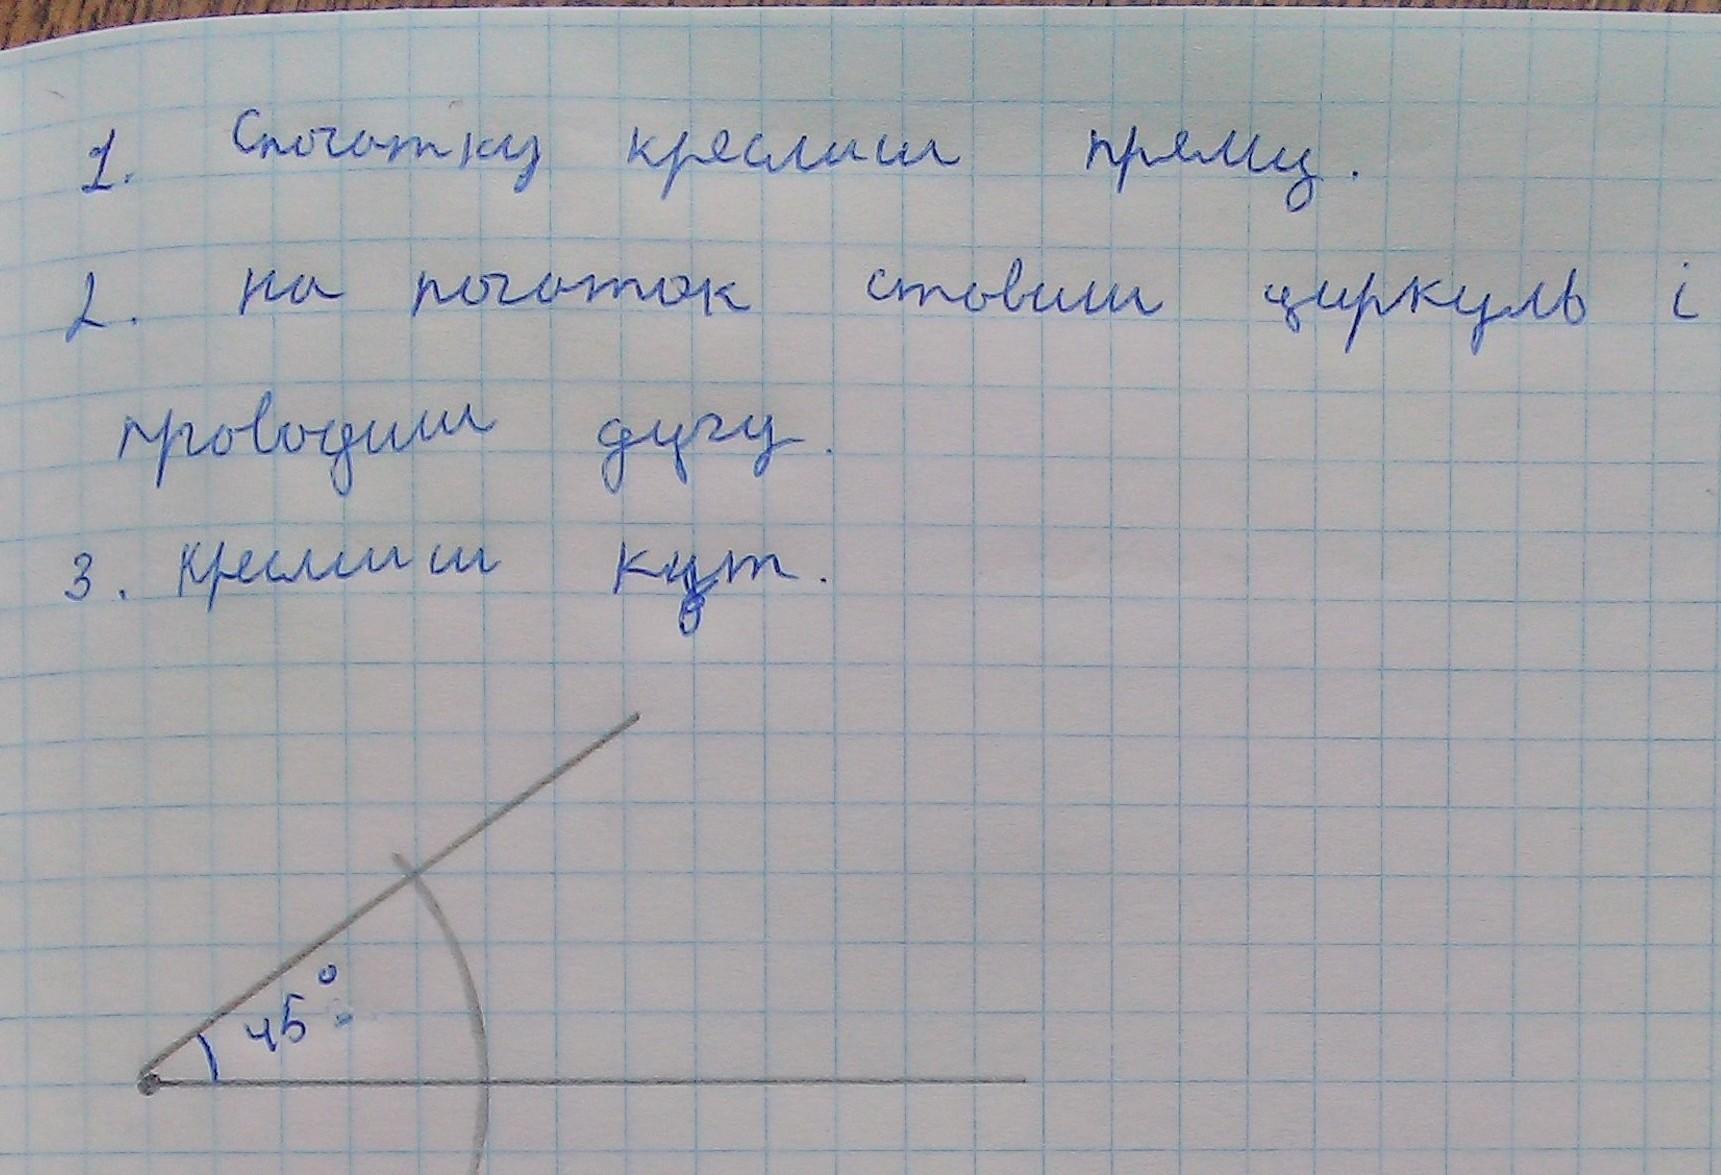 1. Спочатку креслиш пряму.
2. на початок ставиш циркуль і
проводиш дугу.
3. креслиш кут.
45°